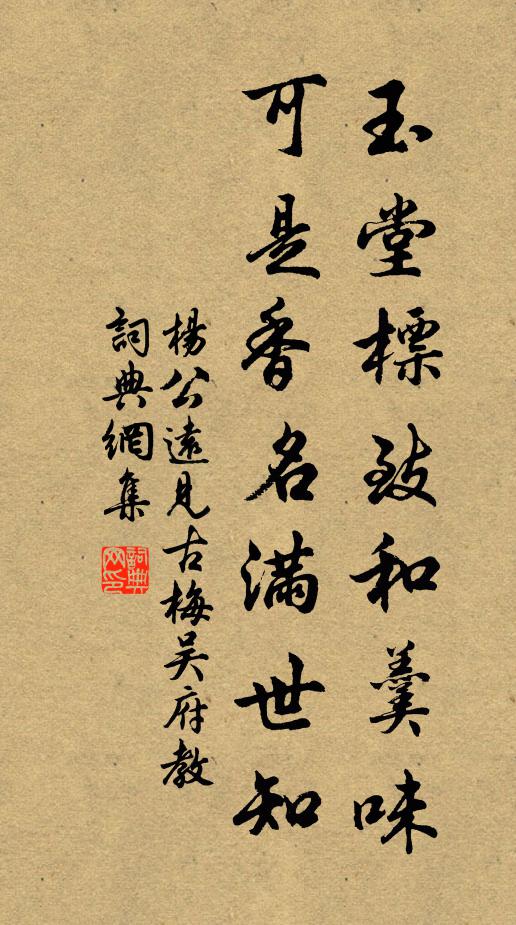 玉堂標致和羹味
可是香名滿世知
楊公遠見古梅吳府教
詞典網集
詞典
网印